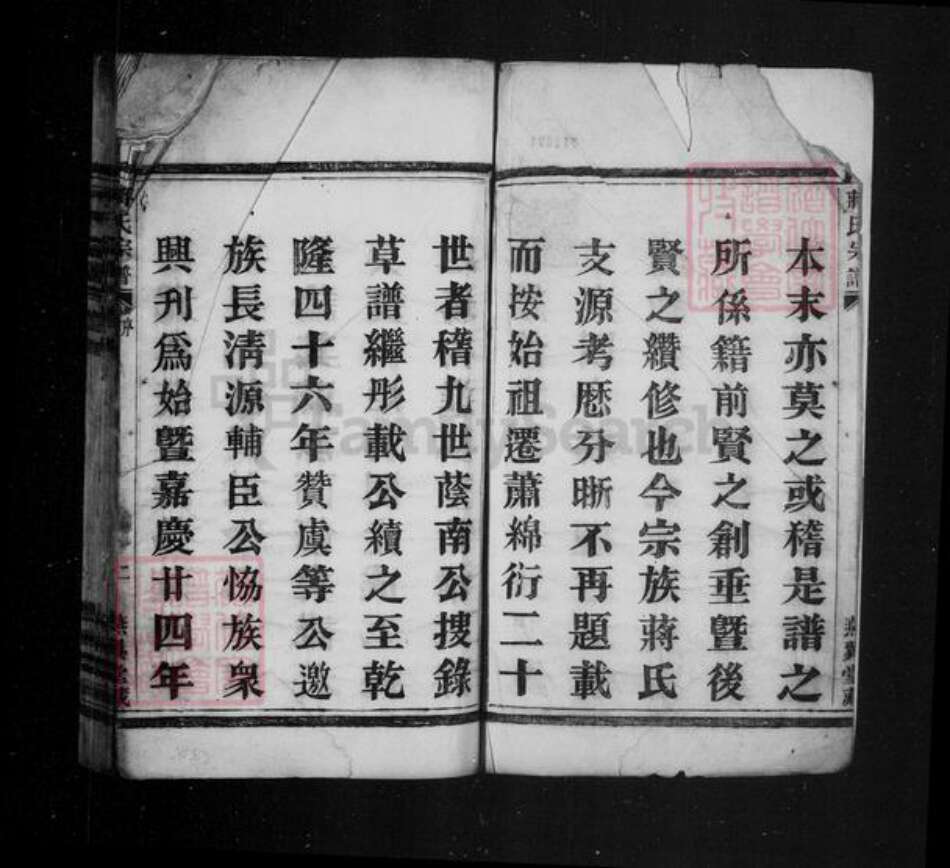 蔣氏宗譜
本末亦莫之或稽是譜之
所係籍前賢之創垂暨後
賢之纘修也今宗族蔣氏
支源考歷分晰不再題載
而按始祖遷蕭綿衍二十
世者稽九世蔭南公搜錄
草譜繼彤載公續之至乾
隆四十六年贊虞等公邀
族長淸源輔臣公恊族衆
興刋爲始曁嘉慶廿四年
氏宗譜
序
FamilySearch